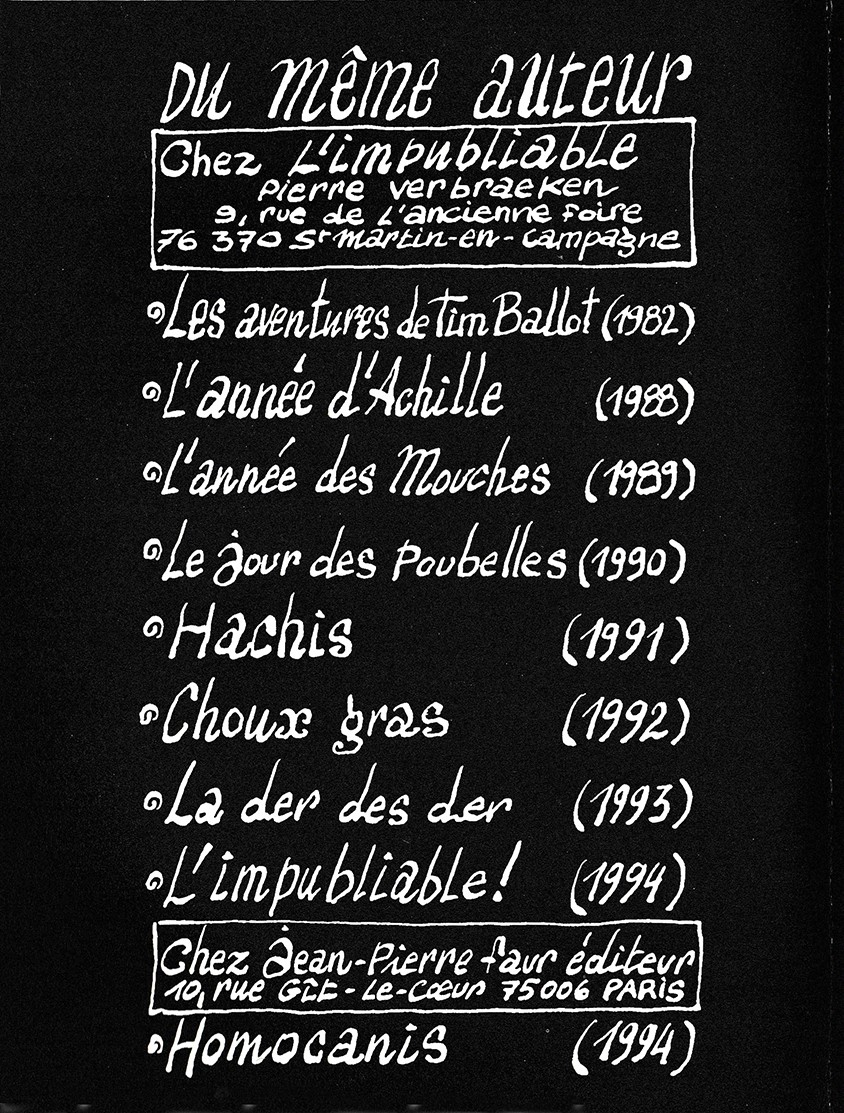 Du même auteur
Chez L'impubliable
Pierre Verbraeken
9, rue de l'ancienne foire
76 370 St Martin-en-Campagne
Les aventures de Tim Ballot (1982)
L'année d'Achille (1988)
L'année des Mouches (1989)
Le jour des Poubelles (1990)
Hachis (1991)
Choux gras (1992)
La der des der (1993)
L'impubliable! (1994)
Chez Jean-Pierre faur éditeur
10, rue Gît-Le-Cœur 75006 PARIS
Homocanis (1994)